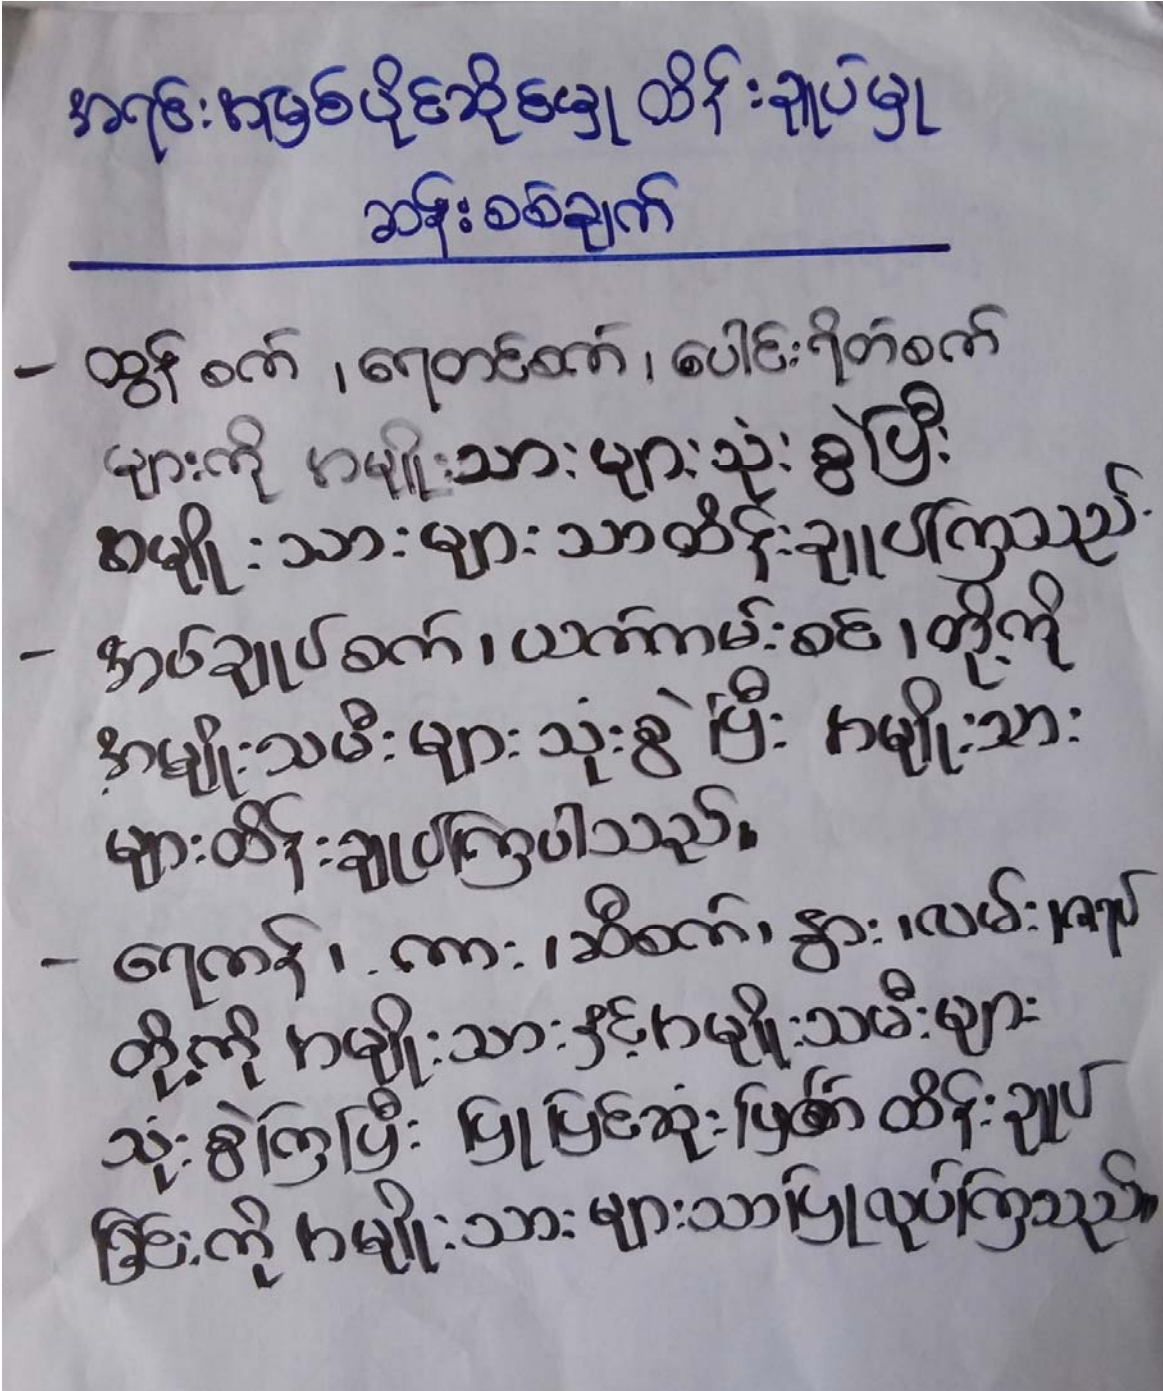 အရင်းအမြစ်ပိုင်ဆိုင်မှု ထိန်းချုပ်မှု
ဆန်းစစ်ချက်
- ထွန်စက် ၊ ရေတင်စက် ၊ ပေါင်းရိတ်စက်
များကို အမျိုးသားများသုံးစွဲပြီး
အမျိုးသားများသာထိန်းချုပ်ကြသည်.
- အပ်ချုပ်စက် ၊ ယက်ကမ်းစင် ၊ တို့ကို
အမျိုးသမီးများ သုံးစွဲပြီး အမျိုးသား
များထိန်းချုပ်ကြပါသည်။
- ရေကန် ၊ ကား ၊ ဆီစက် ၊ နွား ၊ လမ်း ၊
တို့ကို အမျိုးသားနှင့်အမျိုးသမီးများ
သုံးစွဲကြပြီး ပြုပြင်ဆုံးဖြတ် ထိန်းချုပ်
ခြင်းကို အမျိုးသားများသာပြုလုပ်ကြသည်။